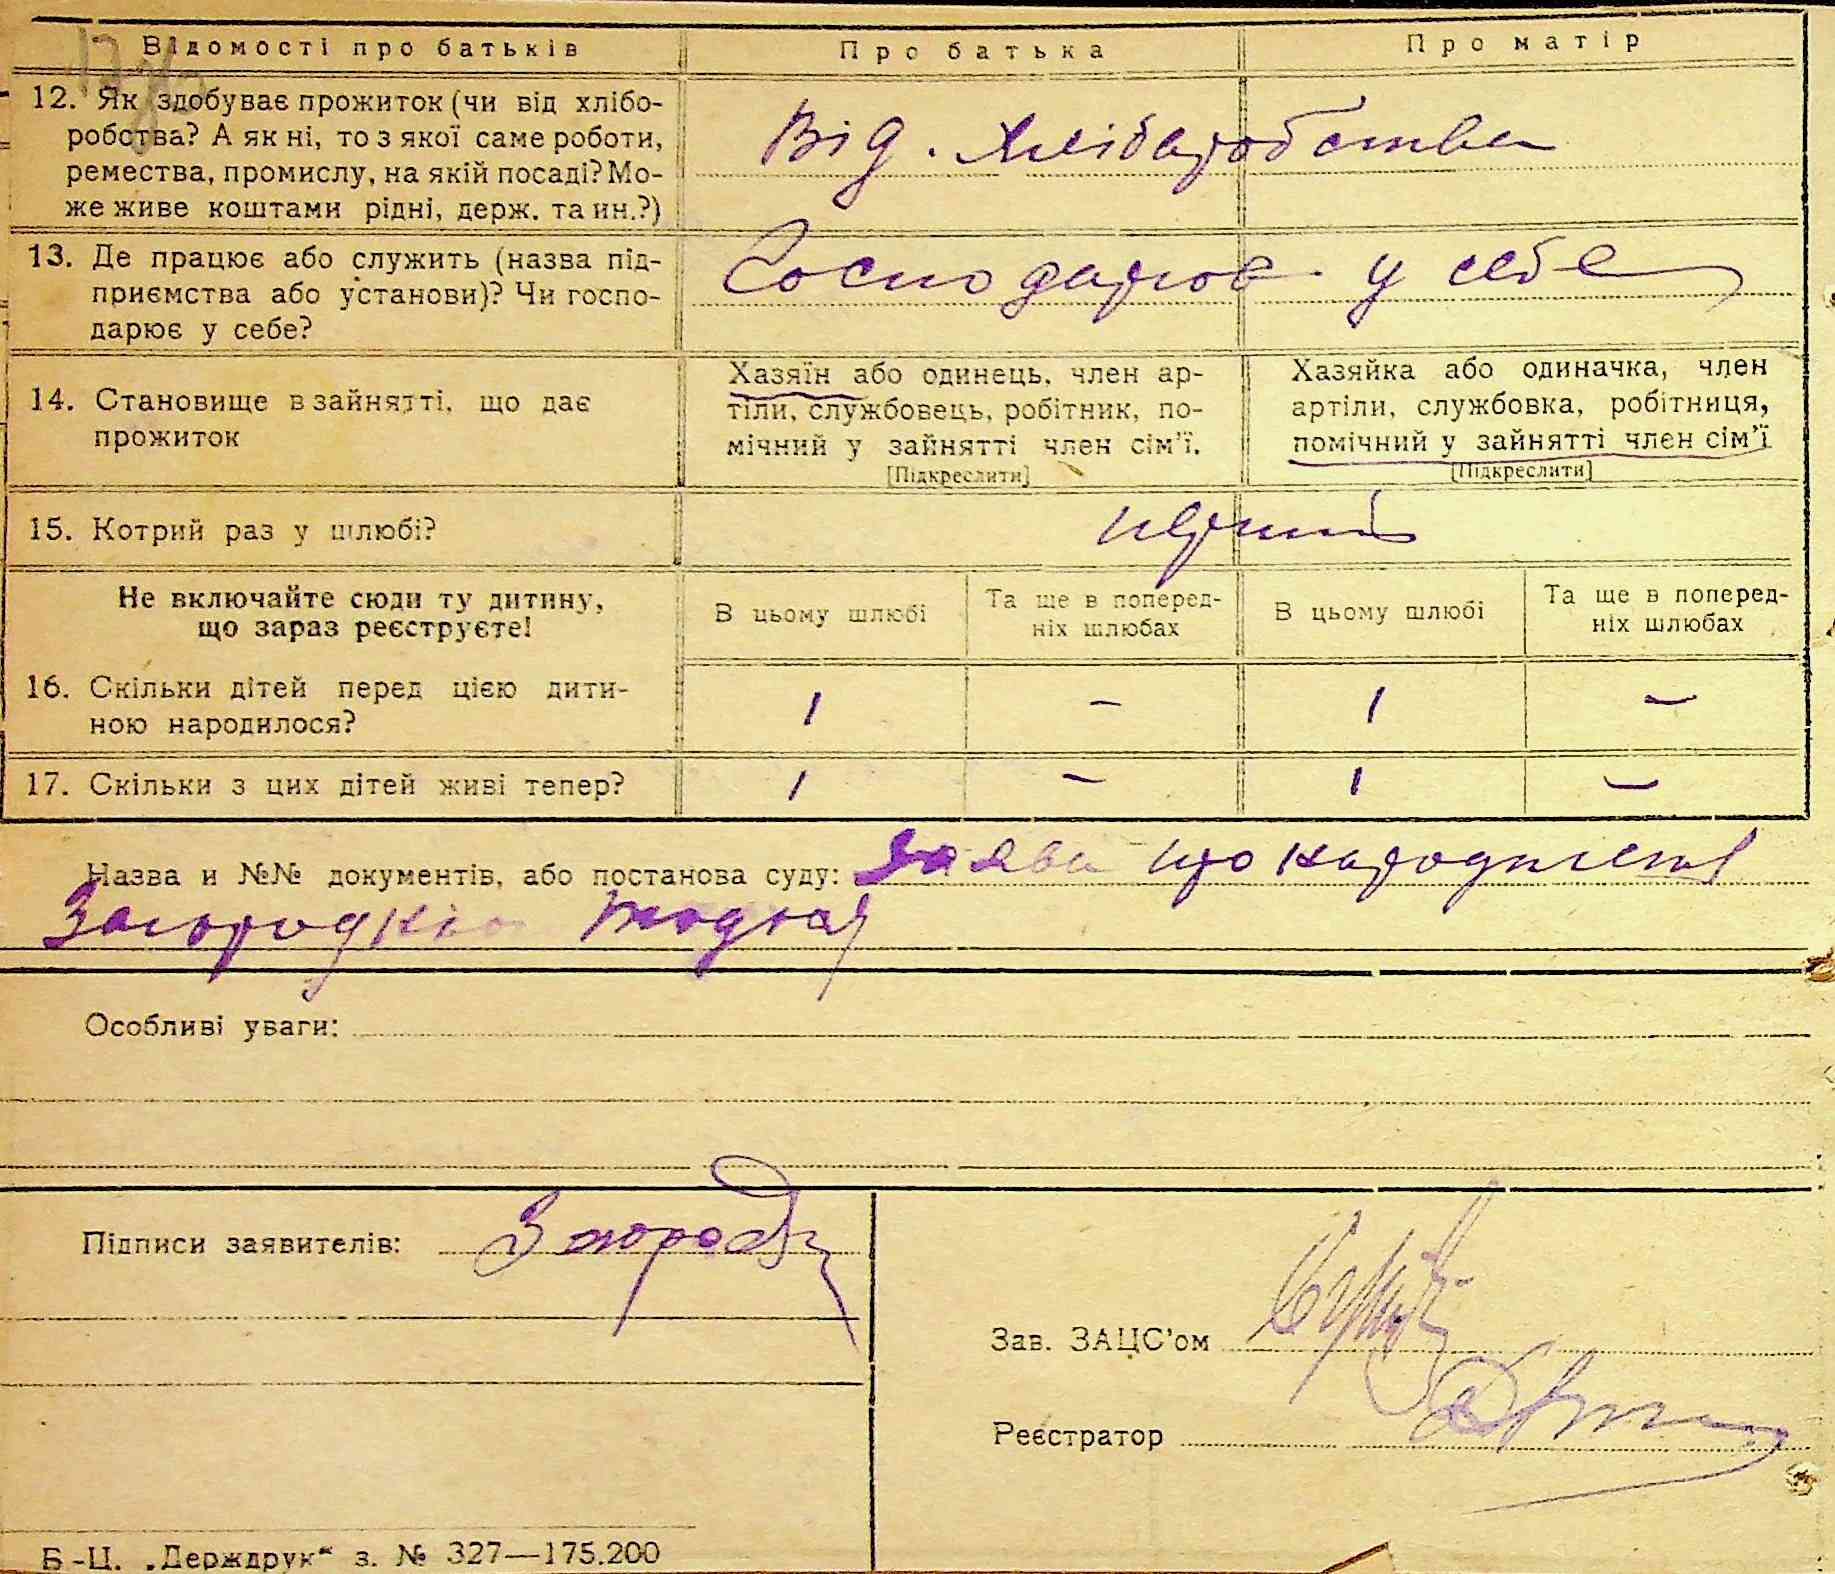 Відомості про батьків
Про батька
Про матір
12. Як здобуває прожиток (чи від хлібо-
робства? А як ні, то з якої саме роботи,
ремества, промислу, на якій посаді? Мо-
же живе коштами рідні, держ. та ин.?)
Від. Хліборобства
13. Де працює або служить (назва під-
приємства або установи)? Чи госпо-
дарює у себе?
Господарює у себе
14. Становище в зайнятті, що дає
прожиток
Хазяїн або одинець, член ар-
тіли, службовець, робітник, по-
мічний у зайнятті член сім'ї.
[Підкреслити]
Хазяйка або одиначка, член
артіли, службовка, робітниця,
помічний у зайнятті член сім'ї
[Підкреслити]
15. Котрий раз у шлюбі?
перший
Не включайте сюди ту дитину,
що зараз реєструєте!
В цьому шлюбі
Та ще в поперед-
ніх шлюбах
В цьому шлюбі
Та ще в поперед-
ніх шлюбах
16. Скільки дітей перед цією дити-
ною народилося?
1 – 1 –
17. Скільки з цих дітей живі тепер?
1 – 1 –
Назва и №№ документів, або постанова суду: заява про народження
Загородкіо
Особливі уваги:
Підписи заявителів:
Зав. ЗАЦС'ом
Реєстратор
Б-Ц. „Держдрук“ з. № 327—175.200